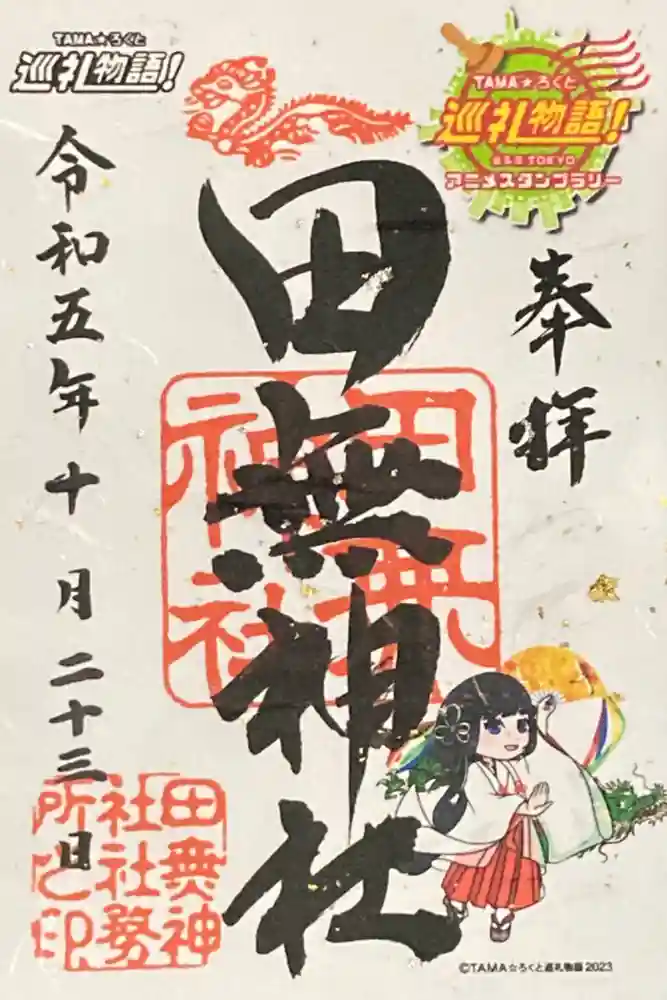 TAMA★ろくと
巡礼物語!
TAMA★ろくと
巡礼物語!
アニメスタンプラリー
奉拝
田無神社
田無神社
令和五年十月二十三日
田無神
社社務
所之印
©TAMA☆ろくと巡礼物語2023